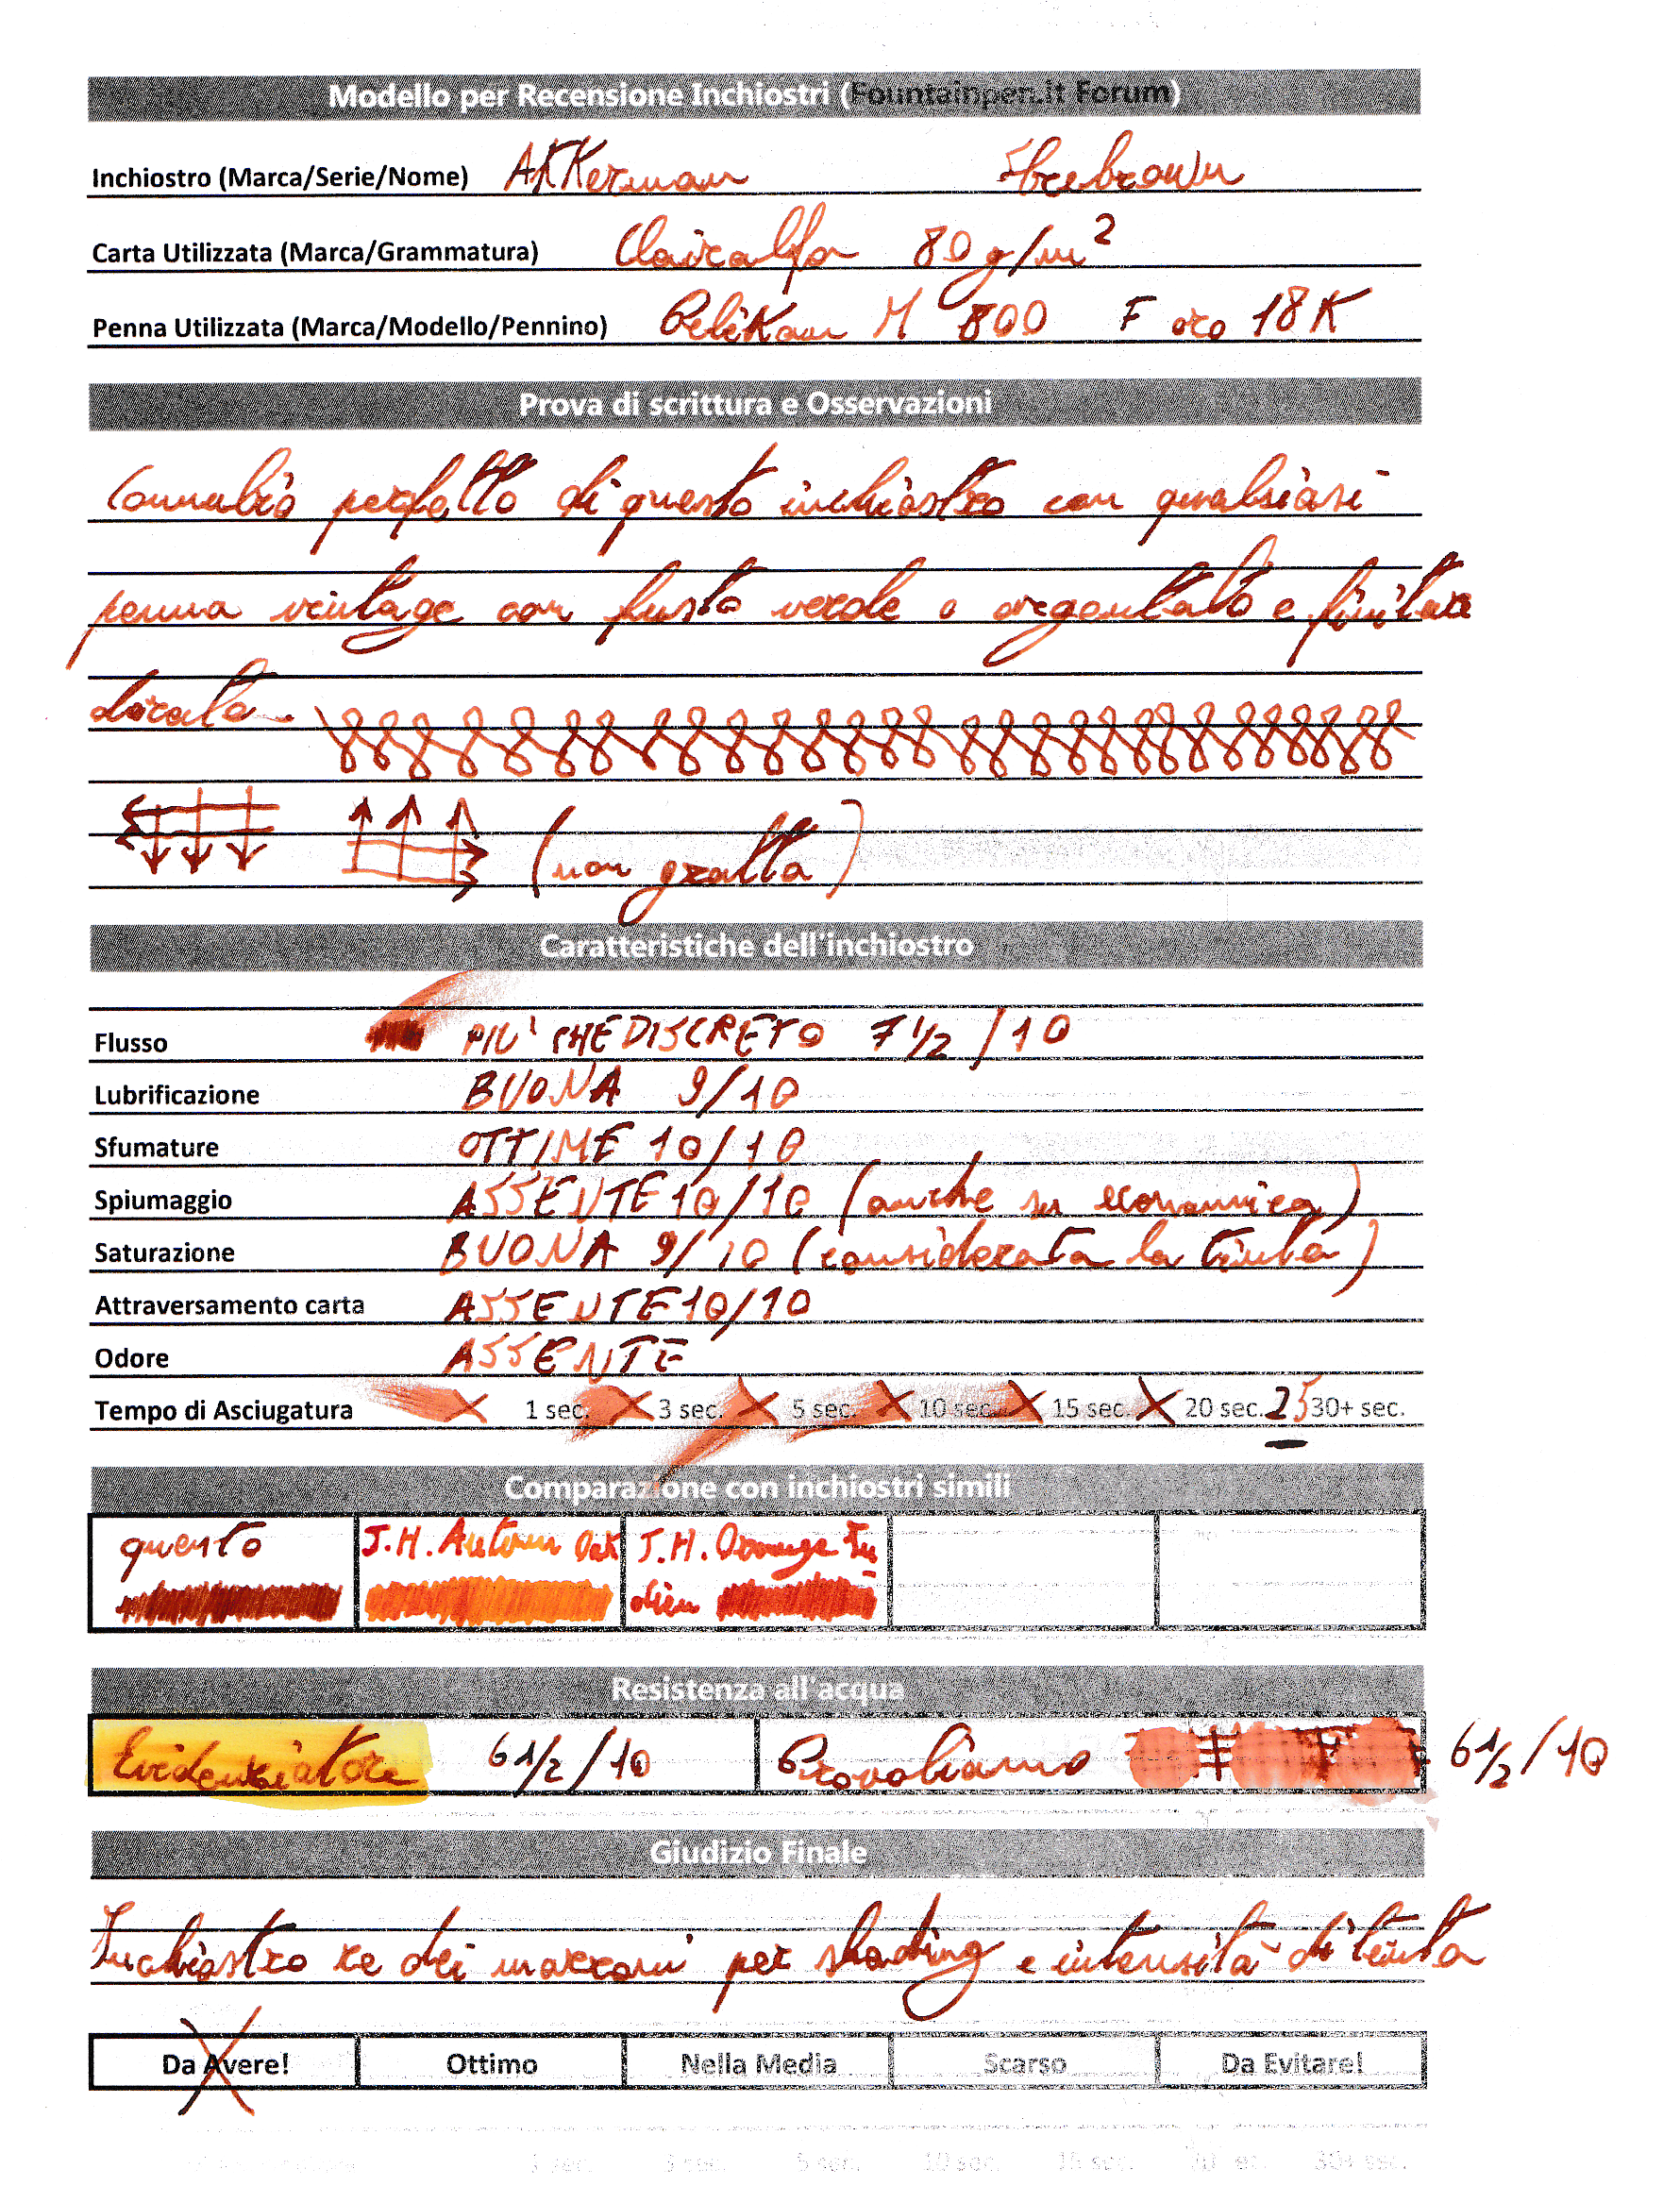 Modello per Recensione Inchiostri (Fountainpen.it Forum)
Inchiostro (Marca/Serie/Nome) AKKerman Sbrebrown
Carta Utilizzata (Marca/Grammatura) Clairalfa 80 g/m²
Penna Utilizzata (Marca/Modello/Pennino) Pelikan M 800 F oro 18K
Prova di scrittura e Osservazioni
Connubio perfetto di questo inchiostro con qualsiasi
penna vintage con fusto verde o argentato e finiture
dorate.
(non gratta)
Caratteristiche dell'inchiostro
Flusso PIU' CHE DISCRETO 7 1/2 / 10
Lubrificazione BUONA 9/10
Sfumature OTTIME 10/10
Spiumaggio ASSENTE 10/10 (anche su economica)
Saturazione BUONA 9/10 (considerata la tinta)
Attraversamento carta ASSENTE 10/10
Odore ASSENTE
Tempo di Asciugatura 1 sec. 3 sec. 5 sec. 10 sec. 15 sec. 20 sec. 25 30+ sec.
Comparazione con inchiostri simili
questo J.H. Autumn Oak J.H. Orange In
dien
Resistenza all'acqua
Evidenziatore 6 1/2 / 10 Provaliamo 6 1/2 / 10
Giudizio Finale
Inchiostro re dei marroni per shading e intensità di tinta
Da Avere! Ottimo Nella Media Scarso Da Evitare!
1 sec. 3 sec. 5 sec. 10 sec. 15 sec. 30+ sec.